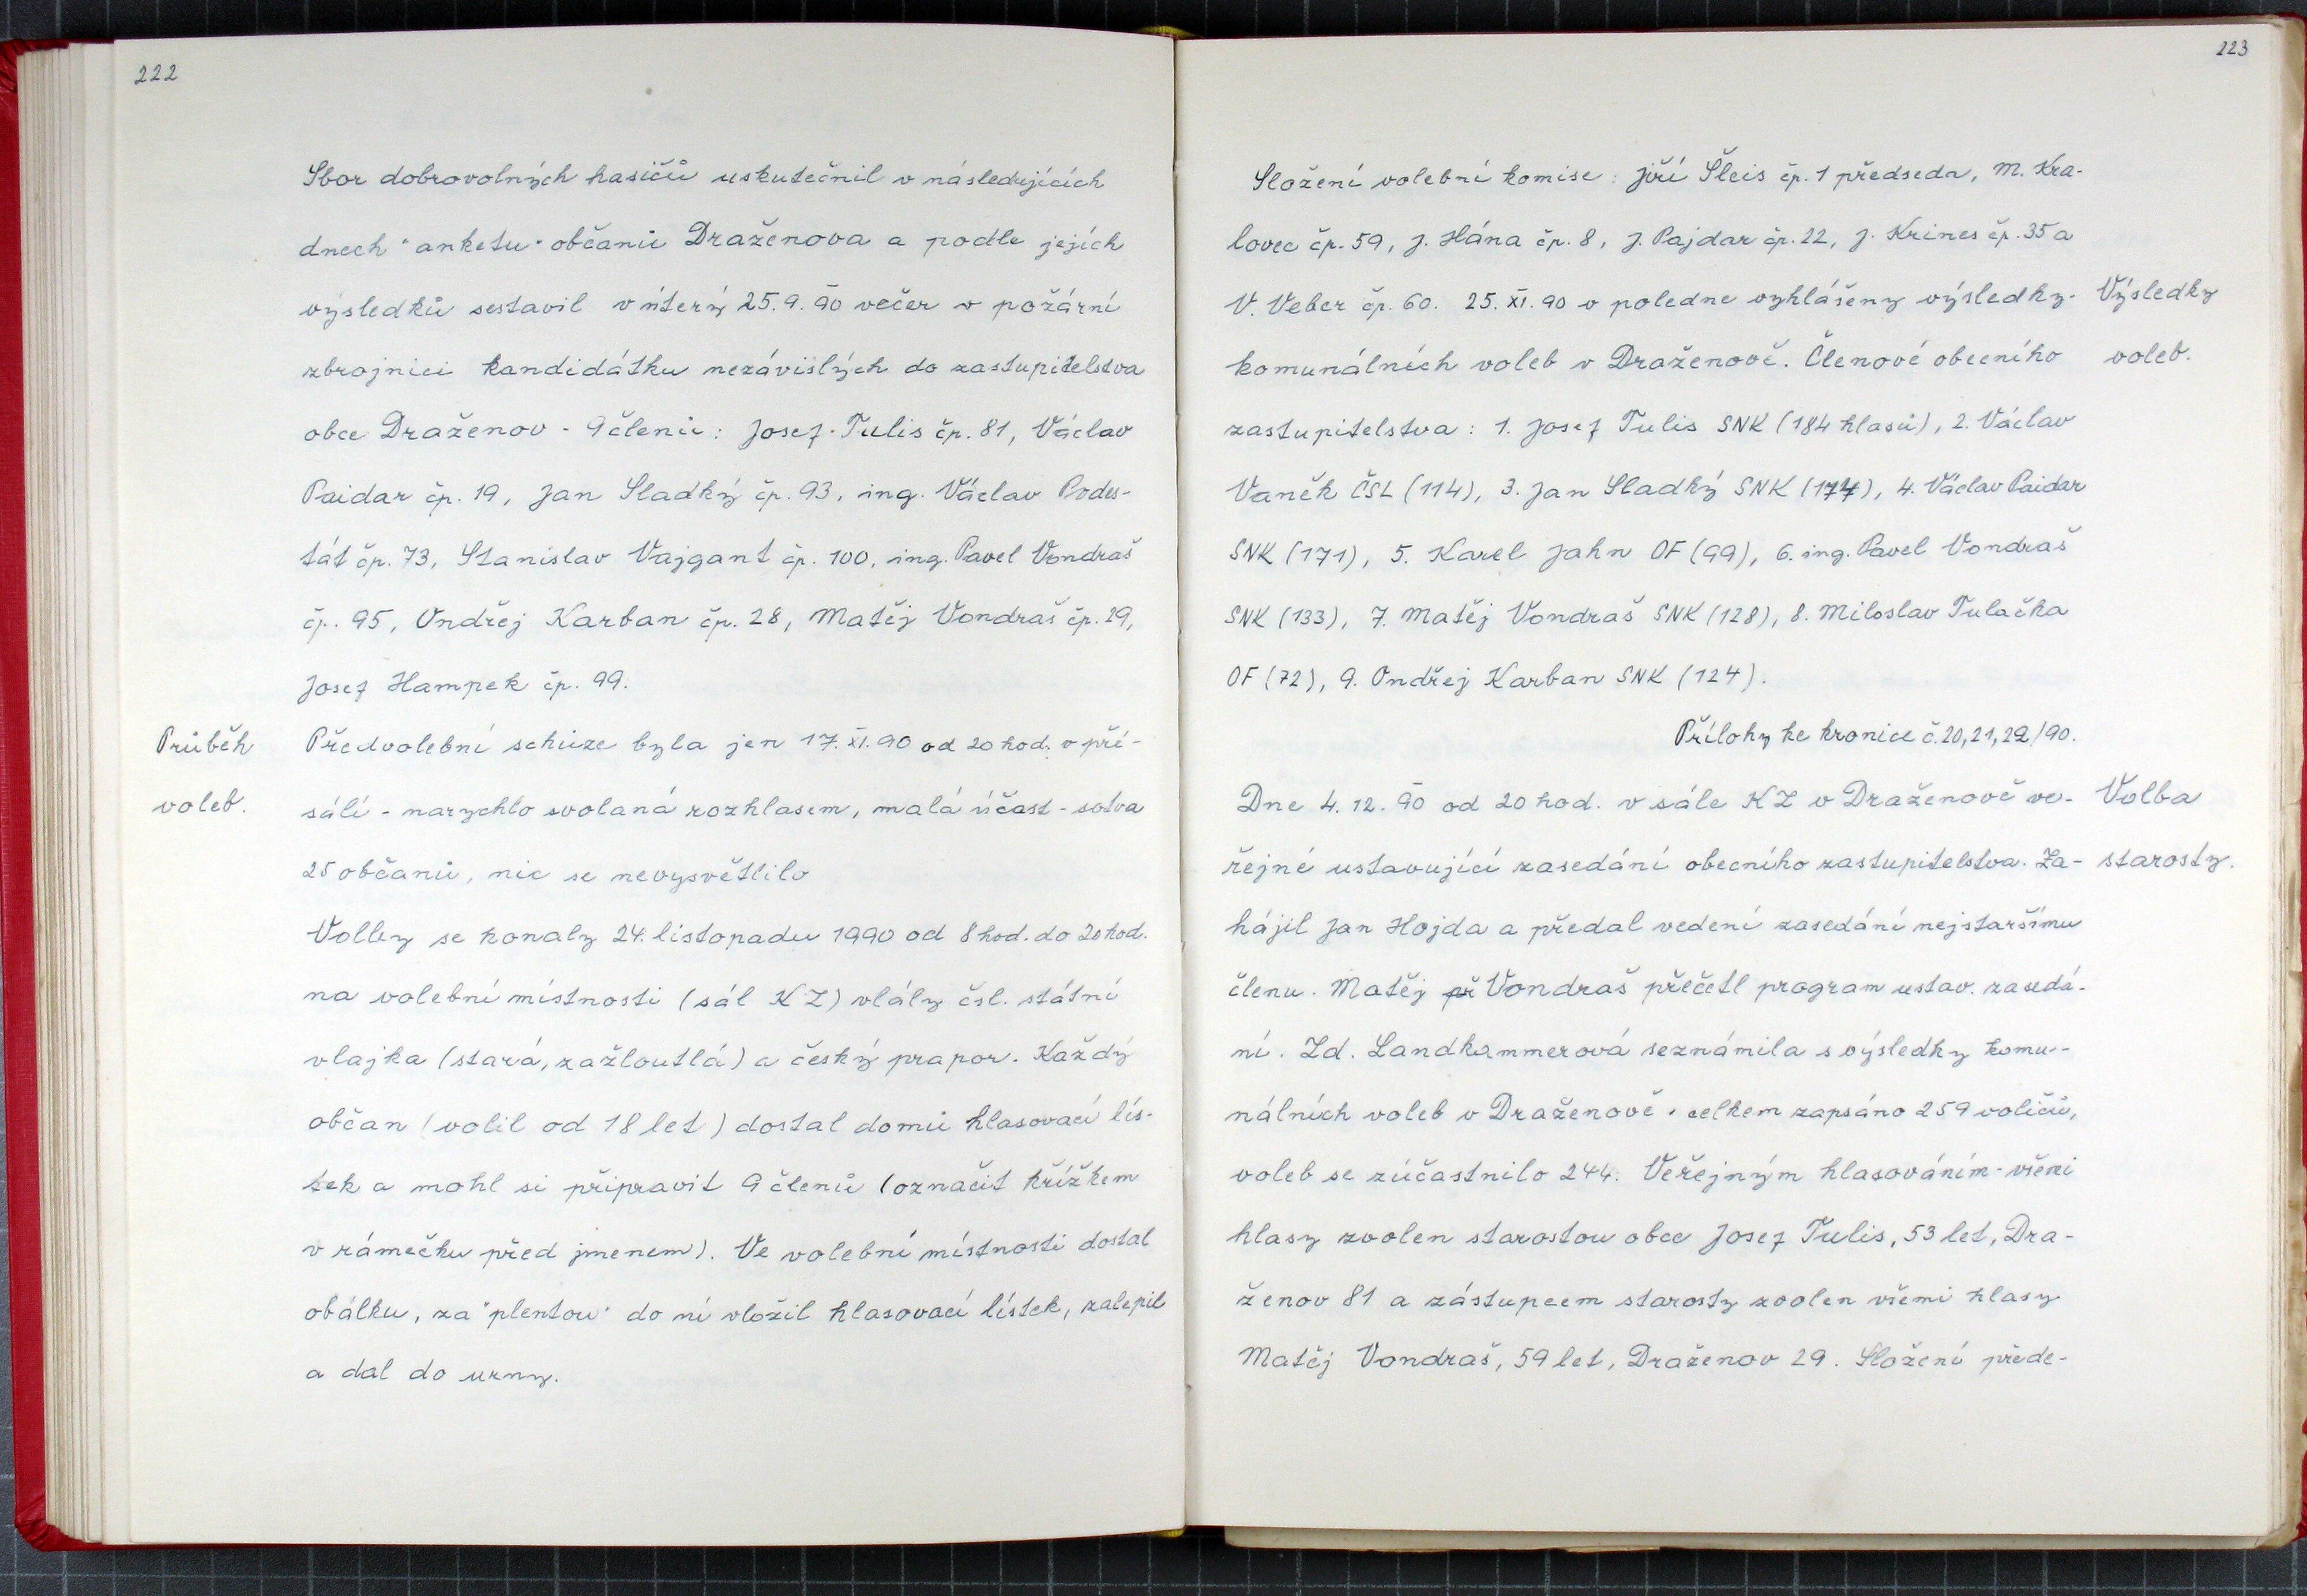 222
Sbor dobrovolných hasičů uskutečnil v následujících
dnech "anketu" občanů Draženova a podle jejích
výsledků sestavil v úterý 25.9.90 večer v požární
zbrojnici kandidátku nezávislých do zastupitelstva
obce Draženov - 9 členů: Josef Tulis čp. 81, Václav
Paidar čp. 19, Jan Sladký čp. 93, ing. Václav Podes-
tát čp. 73, Stanislav Vajgant čp. 100, ing. Pavel Vondraš
čp. 95, Ondřej Karban čp. 28, Matěj Vondraš čp. 29,
Josef Hampek čp. 99.
Průběh
voleb.
Předvolební schůze byla jen 17. XI. 90 od 20 hod. v pří-
sálí - narychlo svolaná rozhlasem, malá účast - sotva
25 občanů, nic se nevysvětlilo
Volby se konaly 24. listopadu 1990 od 8 hod. do 20 hod.
na volební místnosti (sál KZ) vlály čsl. státní
vlajka (stará, zažloutlá) a český prapor. Každý
občan (volil od 18 let) dostal domů hlasovací lís-
tek a mohl si připravit 9 členů (označit křížkem
v rámečku před jmenem). Ve volební místnosti dostal
obálku, za "plentou" do ní vložil hlasovací lístek, zalepil
a dal do urny.
223
Složení volební komise: Jiří Šleis čp. 1 předseda, M. Kra-
lovec čp. 59, J. Hána čp. 8, J. Pajdar čp. 22, J. Krines čp. 35 a
V. Veber čp. 60. 25. XI. 90 v poledne vyhlášeny výsledky
komunálních voleb v Draženově. Členové obecního
Výsledky
voleb.
zastupitelstva: 1. Josef Tulis SNK (184 hlasů), 2. Václav
Vaněk ČSL (114), 3. Jan Sladký SNK (177), 4. Václav Paidar
SNK (171), 5. Karel Jahn OF (99), 6. ing. Pavel Vondraš
SNK (133), 7. Matěj Vondraš SNK (128), 8. Miloslav Tulačka
OF (72), 9. Ondřej Karban SNK (124).
Přílohy ke kronice č. 20, 21, 22/90.
Dne 4. 12. 90 od 20 hod. v sále KZ v Draženově ve-
řejné ustavující zasedání obecního zastupitelstva. Za-
Volba
starosty.
hájil Jan Hojda a předal vedení zasedání nejstaršímu
členu. Matěj př Vondraš přečetl program ustav. zasedá-
ní. Zd. Landkammerová seznámila s výsledky komu-
nálních voleb v Draženově. celkem zapsáno 259 voličů,
voleb se zúčastnilo 244. Veřejným hlasováním - všemi
hlasy zvolen starostou obce Josef Tulis, 53 let, Dra-
ženov 81 a zástupcem starosty zvolen všemi hlasy
Matěj Vondraš, 59 let, Draženov 29. Složení přede-